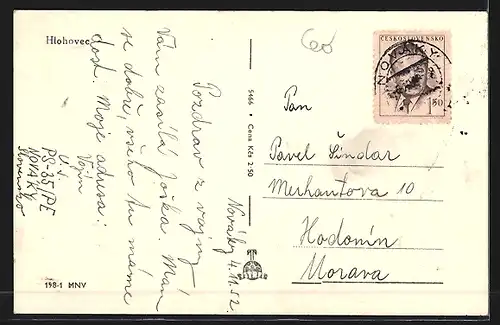 Hlohovec
60
Nováky 4.11.52.
Pozdrav z vojny
Vám zasílá Joška. Mám
se dobře, všeho tu máme
dost. Moje adresa:
Vojín
PS-35/PE
NOVÁKY
Slovensko
198-1 MNV
5466 • Cena Kčs 2·50
ČESKOSLOVENSKO
NOVÁKY
1,50
Pan
Pavel Šindar
Merhautova 10
Hodonín
Morava